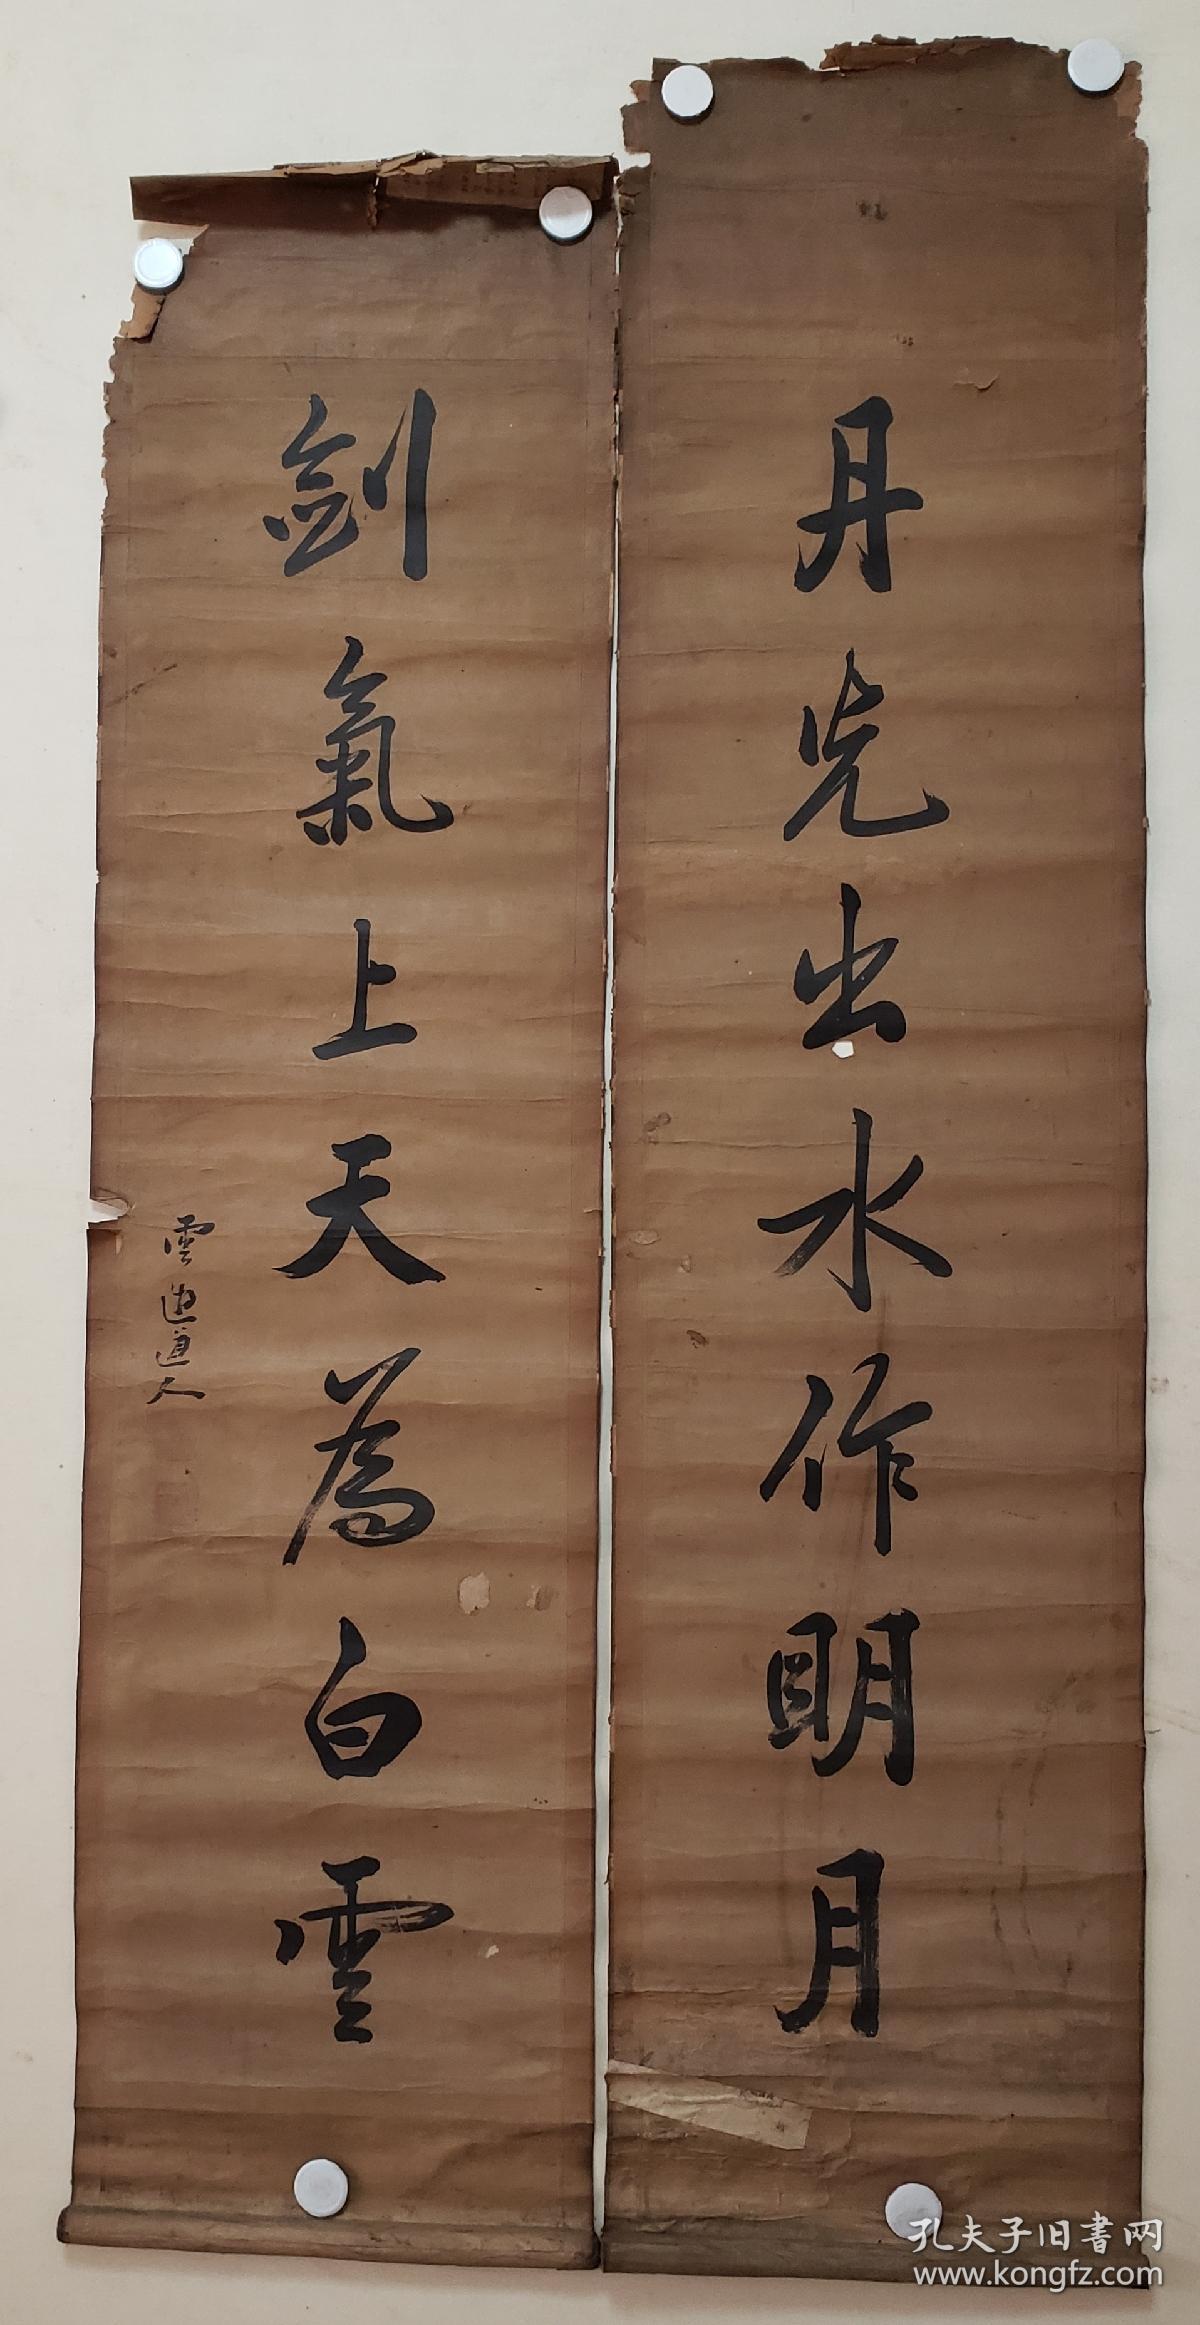 丹光出水作明月
劍氣上天為白雲
雲道人
孔夫子旧書网
www.kongfz.com